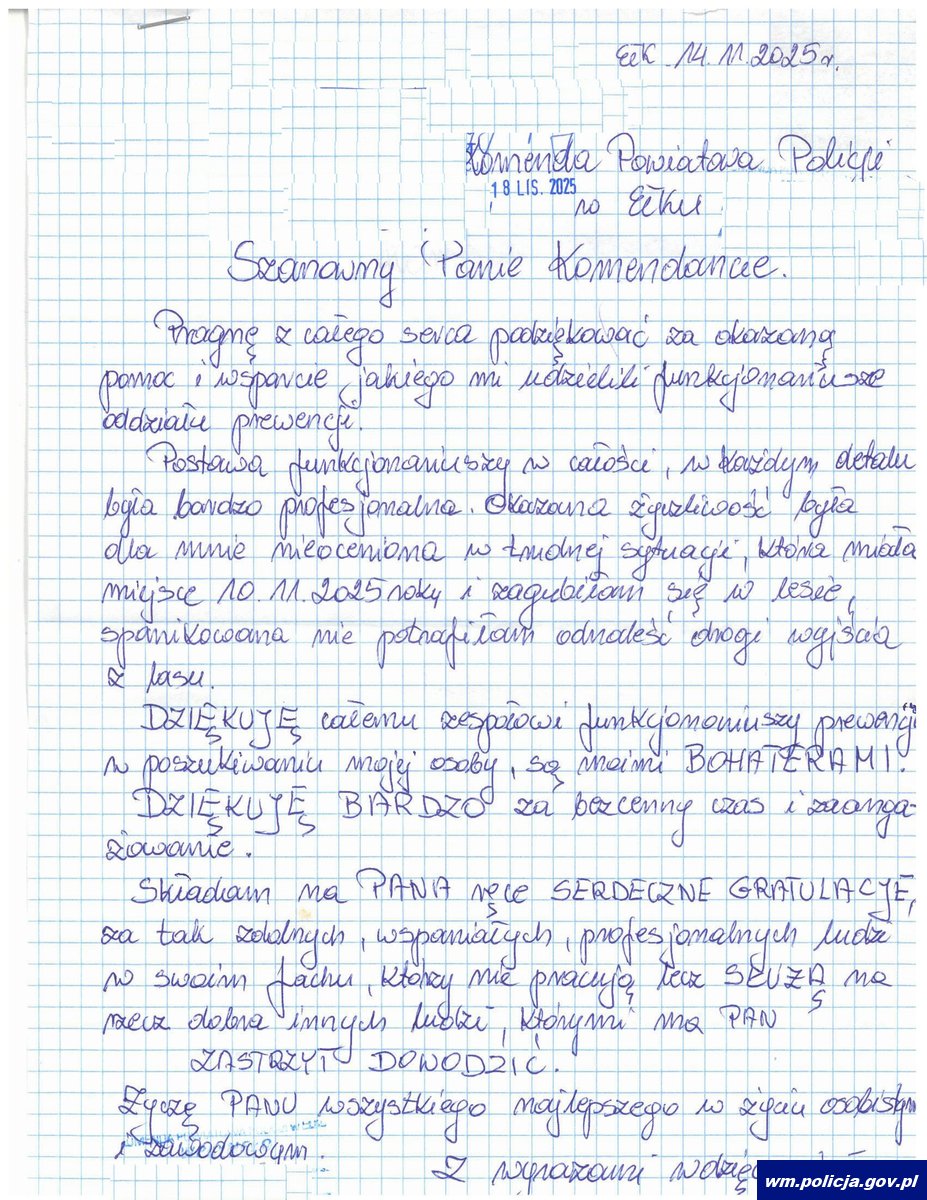 Ełk 14.11.2025r.
Komenda Powiatowa Policji
18 LIS. 2025
w Ełku
Szanowny Panie Komendancie.
Pragnę z całego serca podziękować za okazaną
pomoc i wsparcie, jakiego mi udzielili funkcjonariusze
oddziału prewencji.
Postawa funkcjonariuszy w całości, w każdym detalu
była bardzo profesjonalna. Okazana życzliwość była
dla mnie nieoceniona w trudnej sytuacji, która miała
miejsce 10.11.2025 roku i zagubiłam się w lesie,
spanikowana nie potrafiłam odnaleść drogi wyjścia
z lasu.
DZIĘKUJĘ całemu zespołowi funkcjonariuszy prewencji
w poszukiwaniu mojej osoby, są moimi BOHATERAMI!
DZIĘKUJĘ BARDZO za bezcenny czas i zaanga-
żowanie.
Składam na PANA ręce SERDECZNE GRATULACJE,
za tak zdolnych, wspaniałych, profesjonalnych ludzi
w swoim fachu, którzy nie pracują lecz SŁUŻĄ na
rzecz dobra innych ludzi, którymi ma PAN
ZASTRZYT DOWODZIĆ.
Życzę PANU wszystkiego najlepszego w życiu osobistym
i zawodowym.
Z wyrazami
wm.policja.gov.pl